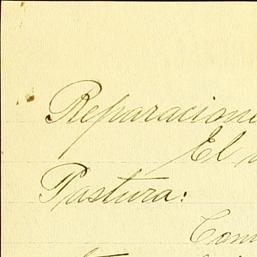 Reparacione
El
Pastura:
Com